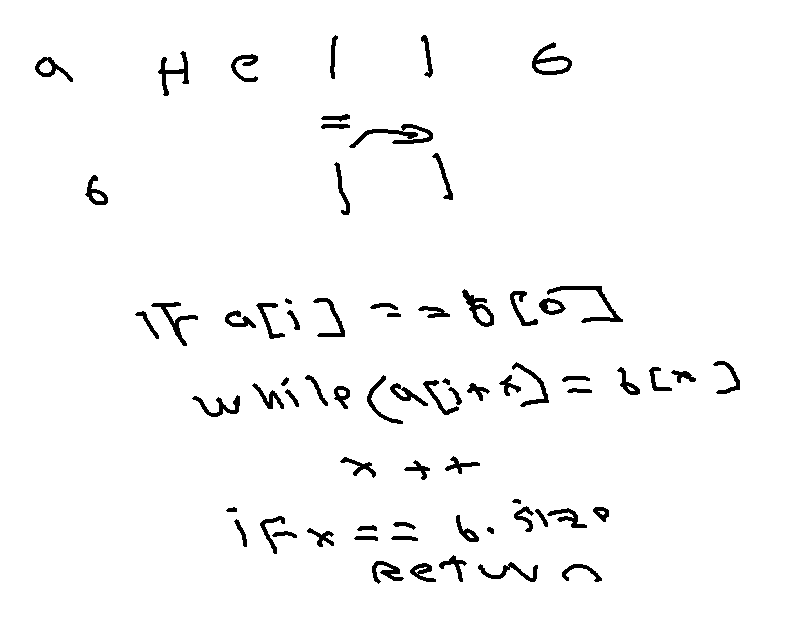 a H e l l 6
=
b l l
if a[i] == b[0]
while(a[i+x] = b[x]
x++
if x == b.size
Return